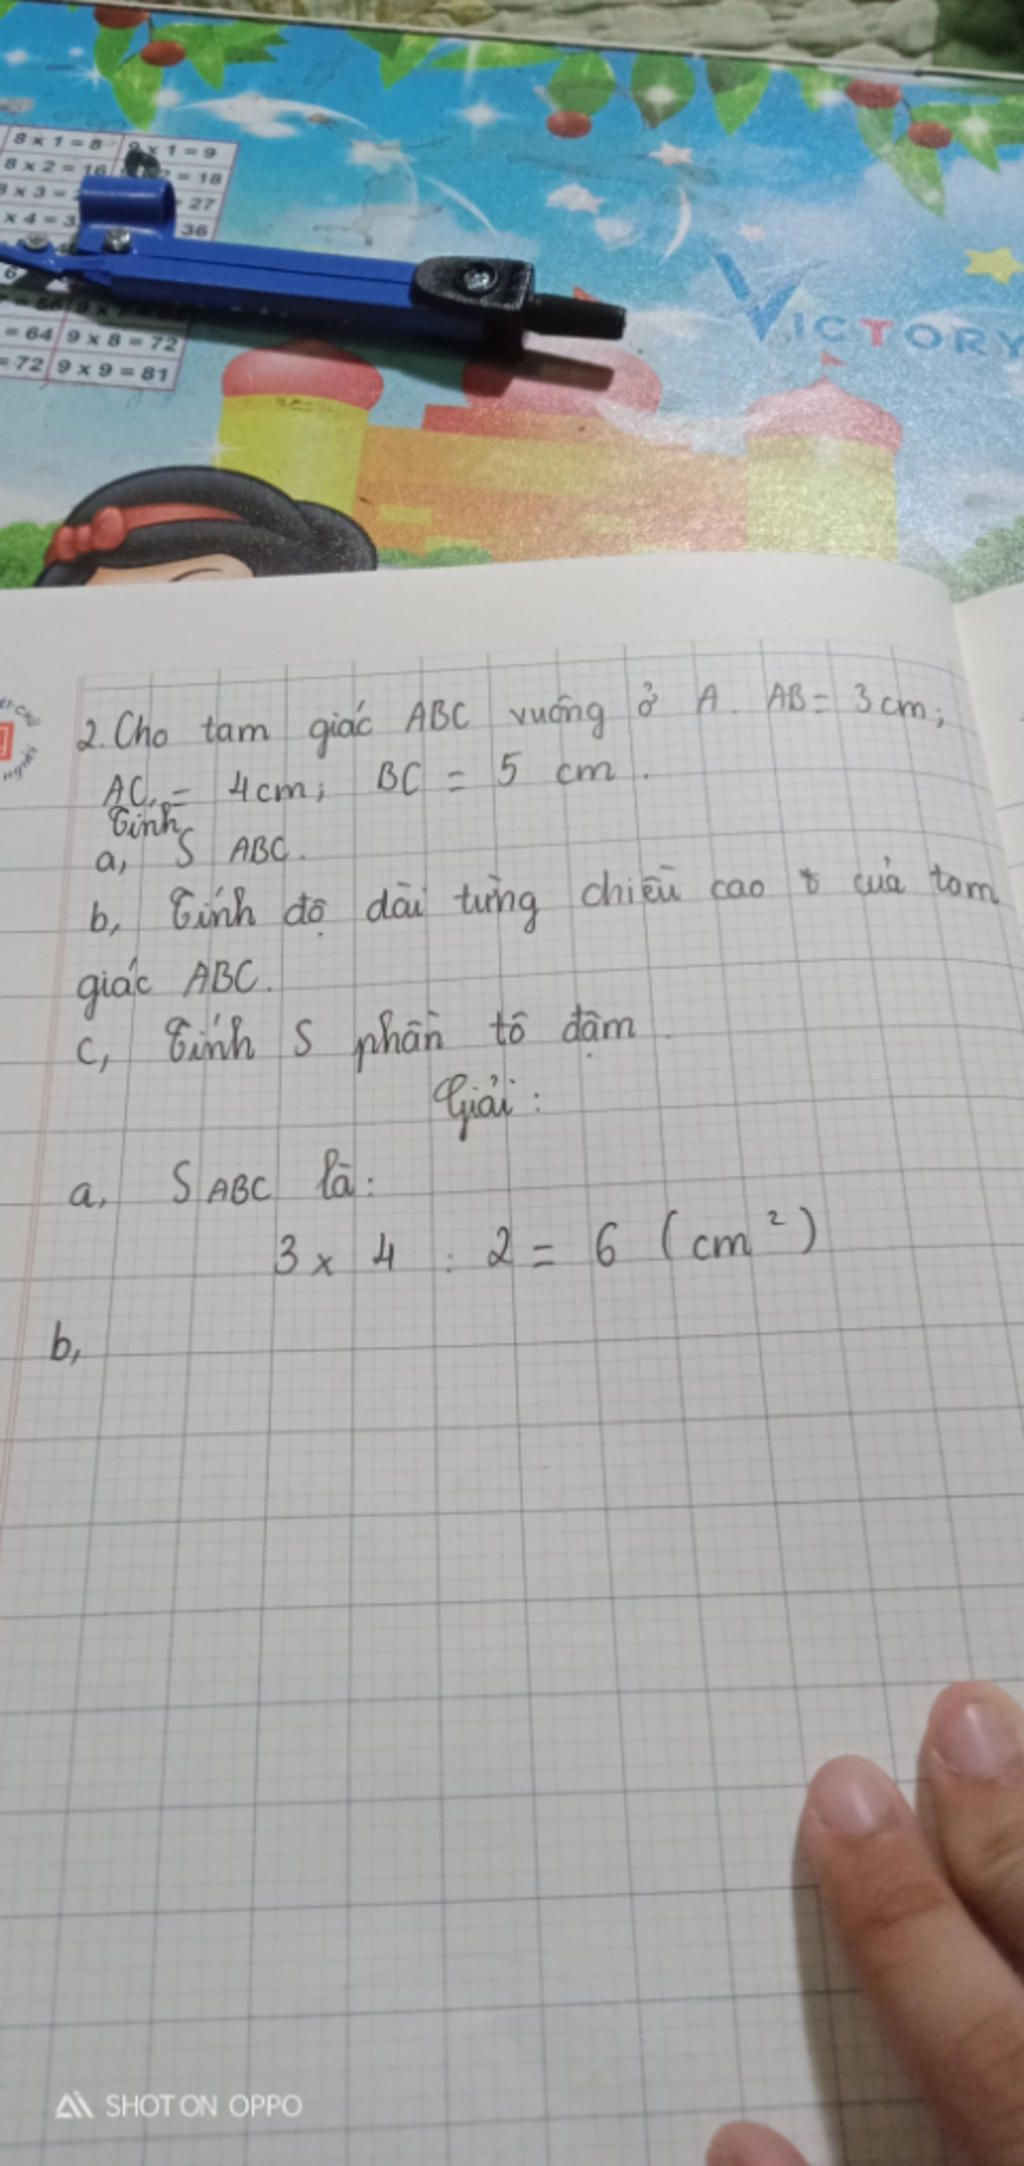 8 x 1 = 8 9 x 1 = 9
8 x 2 = 16 = 18
x 3 = 27
x 4 = 3 36
= 64 9 x 8 = 72
= 72 9 x 9 = 81
VICTORY
2. Cho tam giác ABC vuông ở A. AB = 3 cm;
AC = 4 cm; BC = 5 cm.
Tính
a, S ABC.
b, Tính độ dài từng chiều cao của tam
giác ABC.
c, Tính S phần tô đậm
Giải:
a, S ABC là:
3 x 4 : 2 = 6 (cm²)
b,
SHOT ON OPPO